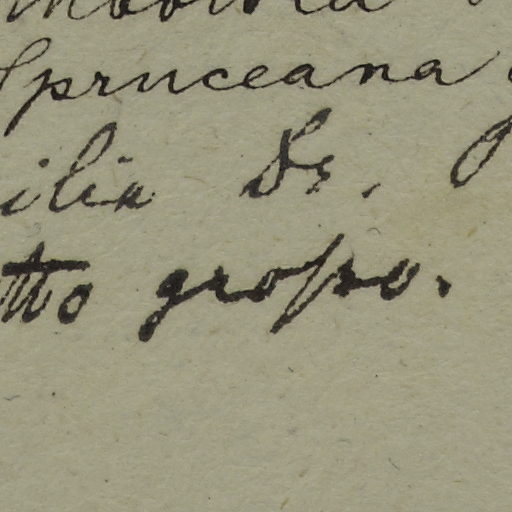 Spruceana
ilia Ds.
tto grosso.